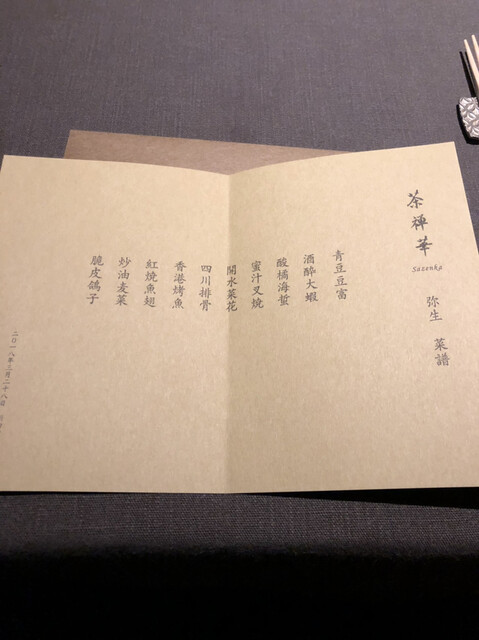 茶禅華
sazanka
弥生 菜譜
青豆豆富
酒醉大蝦
酸橘海蜇
蜜汁叉燒
開水菜花
四川排骨
香港烤魚
紅燒魚翅
炒油麦菜
脆皮鴿子
二〇一八年三月二十八日